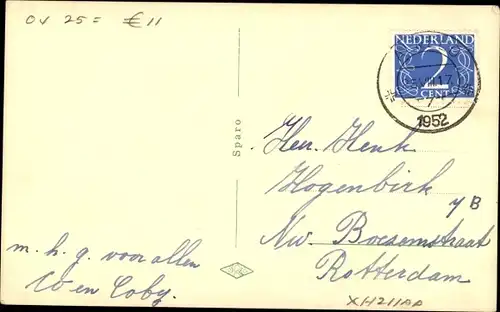 OV 25= € 11
NEDERLAND
2
CENT
1952
Sparo
Heer Henk
Hogenbirk
Nw. Boezemstraat
Rotterdam
m. h. g. voor allen
Co en Coby.
XH211AA